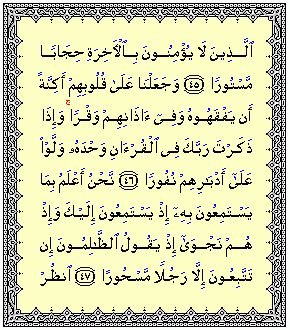 ٱلَّذِينَ لَا يُؤْمِنُونَ بِٱلْأَخِرَةِ حِجَابًا
مَّسْتُورًا ٤٥ وَجَعَلْنَا عَلَىٰ قُلُوبِهِمْ أَكِنَّةً
أَن يَفْقَهُوهُ وَفِىٓ ءَاذَانِهِمْ وَقْرًا ۚ وَإِذَا
ذَكَرْتَ رَبَّكَ فِى ٱلْقُرْءَانِ وَحْدَهُۥ وَلَّوْا۟
عَلَىٰٓ أَدْبَـٰرِهِمْ نُفُورًا ٤٦ نَّحْنُ أَعْلَمُ بِمَا
يَسْتَمِعُونَ بِهِۦٓ إِذْ يَسْتَمِعُونَ إِلَيْكَ وَإِذْ
هُمْ نَجْوَىٰٓ إِذْ يَقُولُ ٱلظَّـٰلِمُونَ إِن
تَتَّبِعُونَ إِلَّا رَجُلًا مَّسْحُورًا ٤٧ ٱنظُرْ